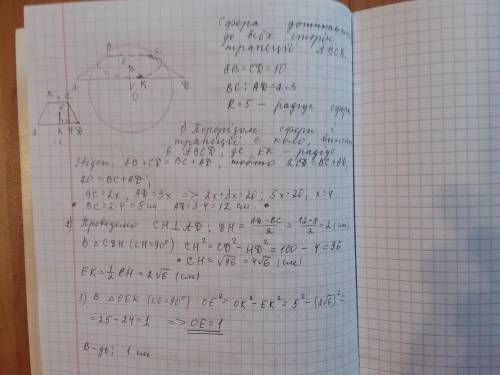 Сфера дотикається
до всіх сторін
трапеції ABCD.
AB=CD=10
BC:AD=2:3
R=5 - радіус сфери
1) Перерізом сфери і
трапеції є коло, вписане
в ABCD, де EK - радіус
Звідси, AB+CD=BC+AD, тобто 2CD=BC+AD,
20=BC+AD;
BC=2x, AD=3x => 2x+3x=20; 5x=20; x=4.
BC=2·4=8см AD=3·4=12 см.
2) Проведемо CH⊥AD; DH=(AD-BC)/2=(12-8)/2=2(см)
В △CDH (∠H=90°) CH²=CD²-HD²=100-4=96
CH=√96=4√6 (см)
EK=1/2 CH=2√6 (см)
3) В △OEK (∠O=90°) OE²=OK²-EK²=5²-(2√6)²=
=25-24=1 => OE=1
В-дь: 1 см